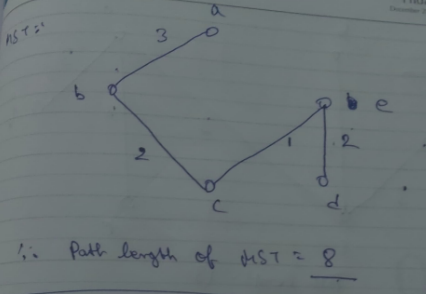 MST =
a
3
b
e
2
1
2
c
d
∴ Path length of MST = 8